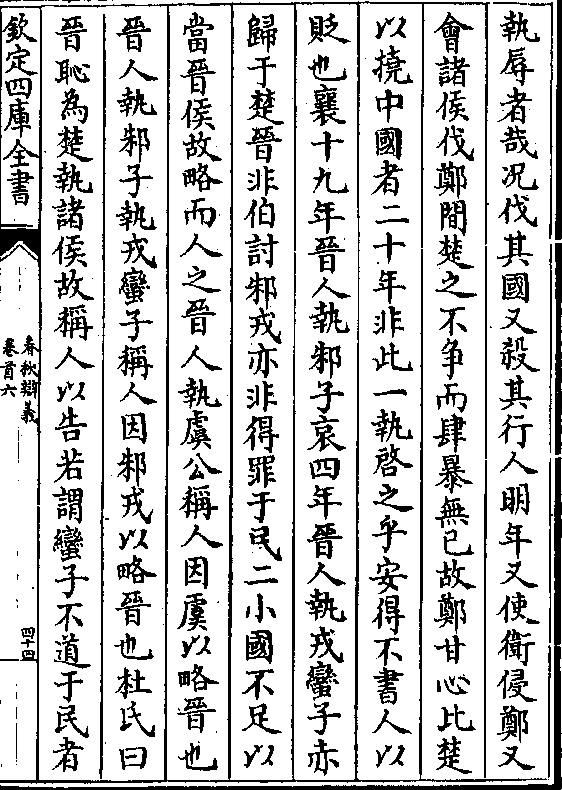 執辱者哉况伐其國又殺其行人明年又使衛侵鄭又
會諸侯伐鄭間楚之不争而肆暴無已故鄭甘心比楚
以撓中國者二十年非此一執啓之乎安得不書人以
貶也襄十九年晉人執邾子哀四年晉人執戎蠻子亦
歸于楚晉非伯討邾戎亦非得罪于民二小國不足以
當晉侯故略而人之晉人執虞公稱人因虞以略晉也
晉人執邾子執戎蠻子稱人因邾戎以略晉也杜氏曰
晉恥為楚執諸侯故稱人以告若謂蠻子不道于民者
欽定四庫全書
春秋辯義
卷首六
四十四